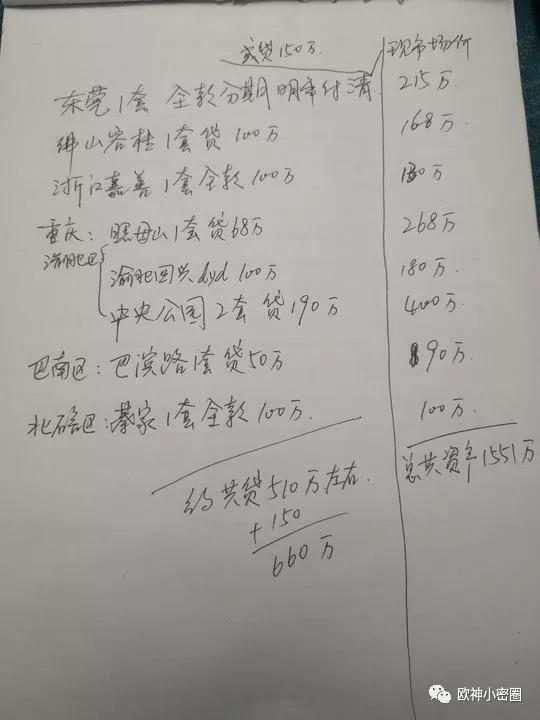 或贷150万 现市场价
东莞1套 全款分期 明年付清 215万
佛山容桂1套贷100万 168万
浙江嘉善1套全款100万 130万
重庆: 照母山1套贷68万 268万
渝北区 渝北回兴dyd 100万 180万
中央公园2套贷190万 400万
巴南区: 巴滨路1套贷50万 90万
北碚区: 蔡家1套全款100万. 100万.
总共资产1551万
约共贷510万左右.
+150
660万
欧神小密圈